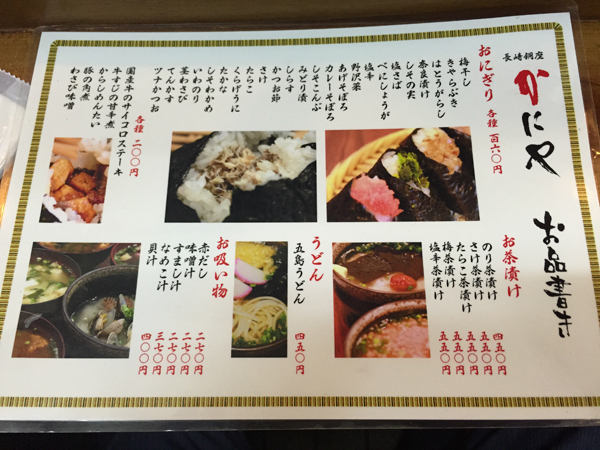 長崎銅座
かにや
お品書き
おにぎり 各種 百六〇円
梅干し
きゃらぶき
はとうがらし
奈良漬け
しその実
塩さば
べにしょうが
塩辛
野沢菜
あげそぼろ
カレーそぼろ
しそこんぶ
みどり漬
しらす
かつお節
さけ
たらこ
くらげうに
たかな
しそわかめ
いわのり
茎わさび
てんかす
ツナかつお
各種 二〇〇円
国産牛のサイコロステーキ
牛すじの甘辛煮
からしめんたい
豚の角煮
わさび味噌
お茶漬け
のり茶漬け 四五〇円
さけ茶漬け 五五〇円
たらこ茶漬け 五五〇円
梅茶漬け 五五〇円
塩辛茶漬け 五五〇円
うどん
五島うどん 四五〇円
お吸い物
赤だし 二七〇円
味噌汁 二七〇円
すまし汁 二七〇円
なめこ汁 三七〇円
貝汁 四二〇円